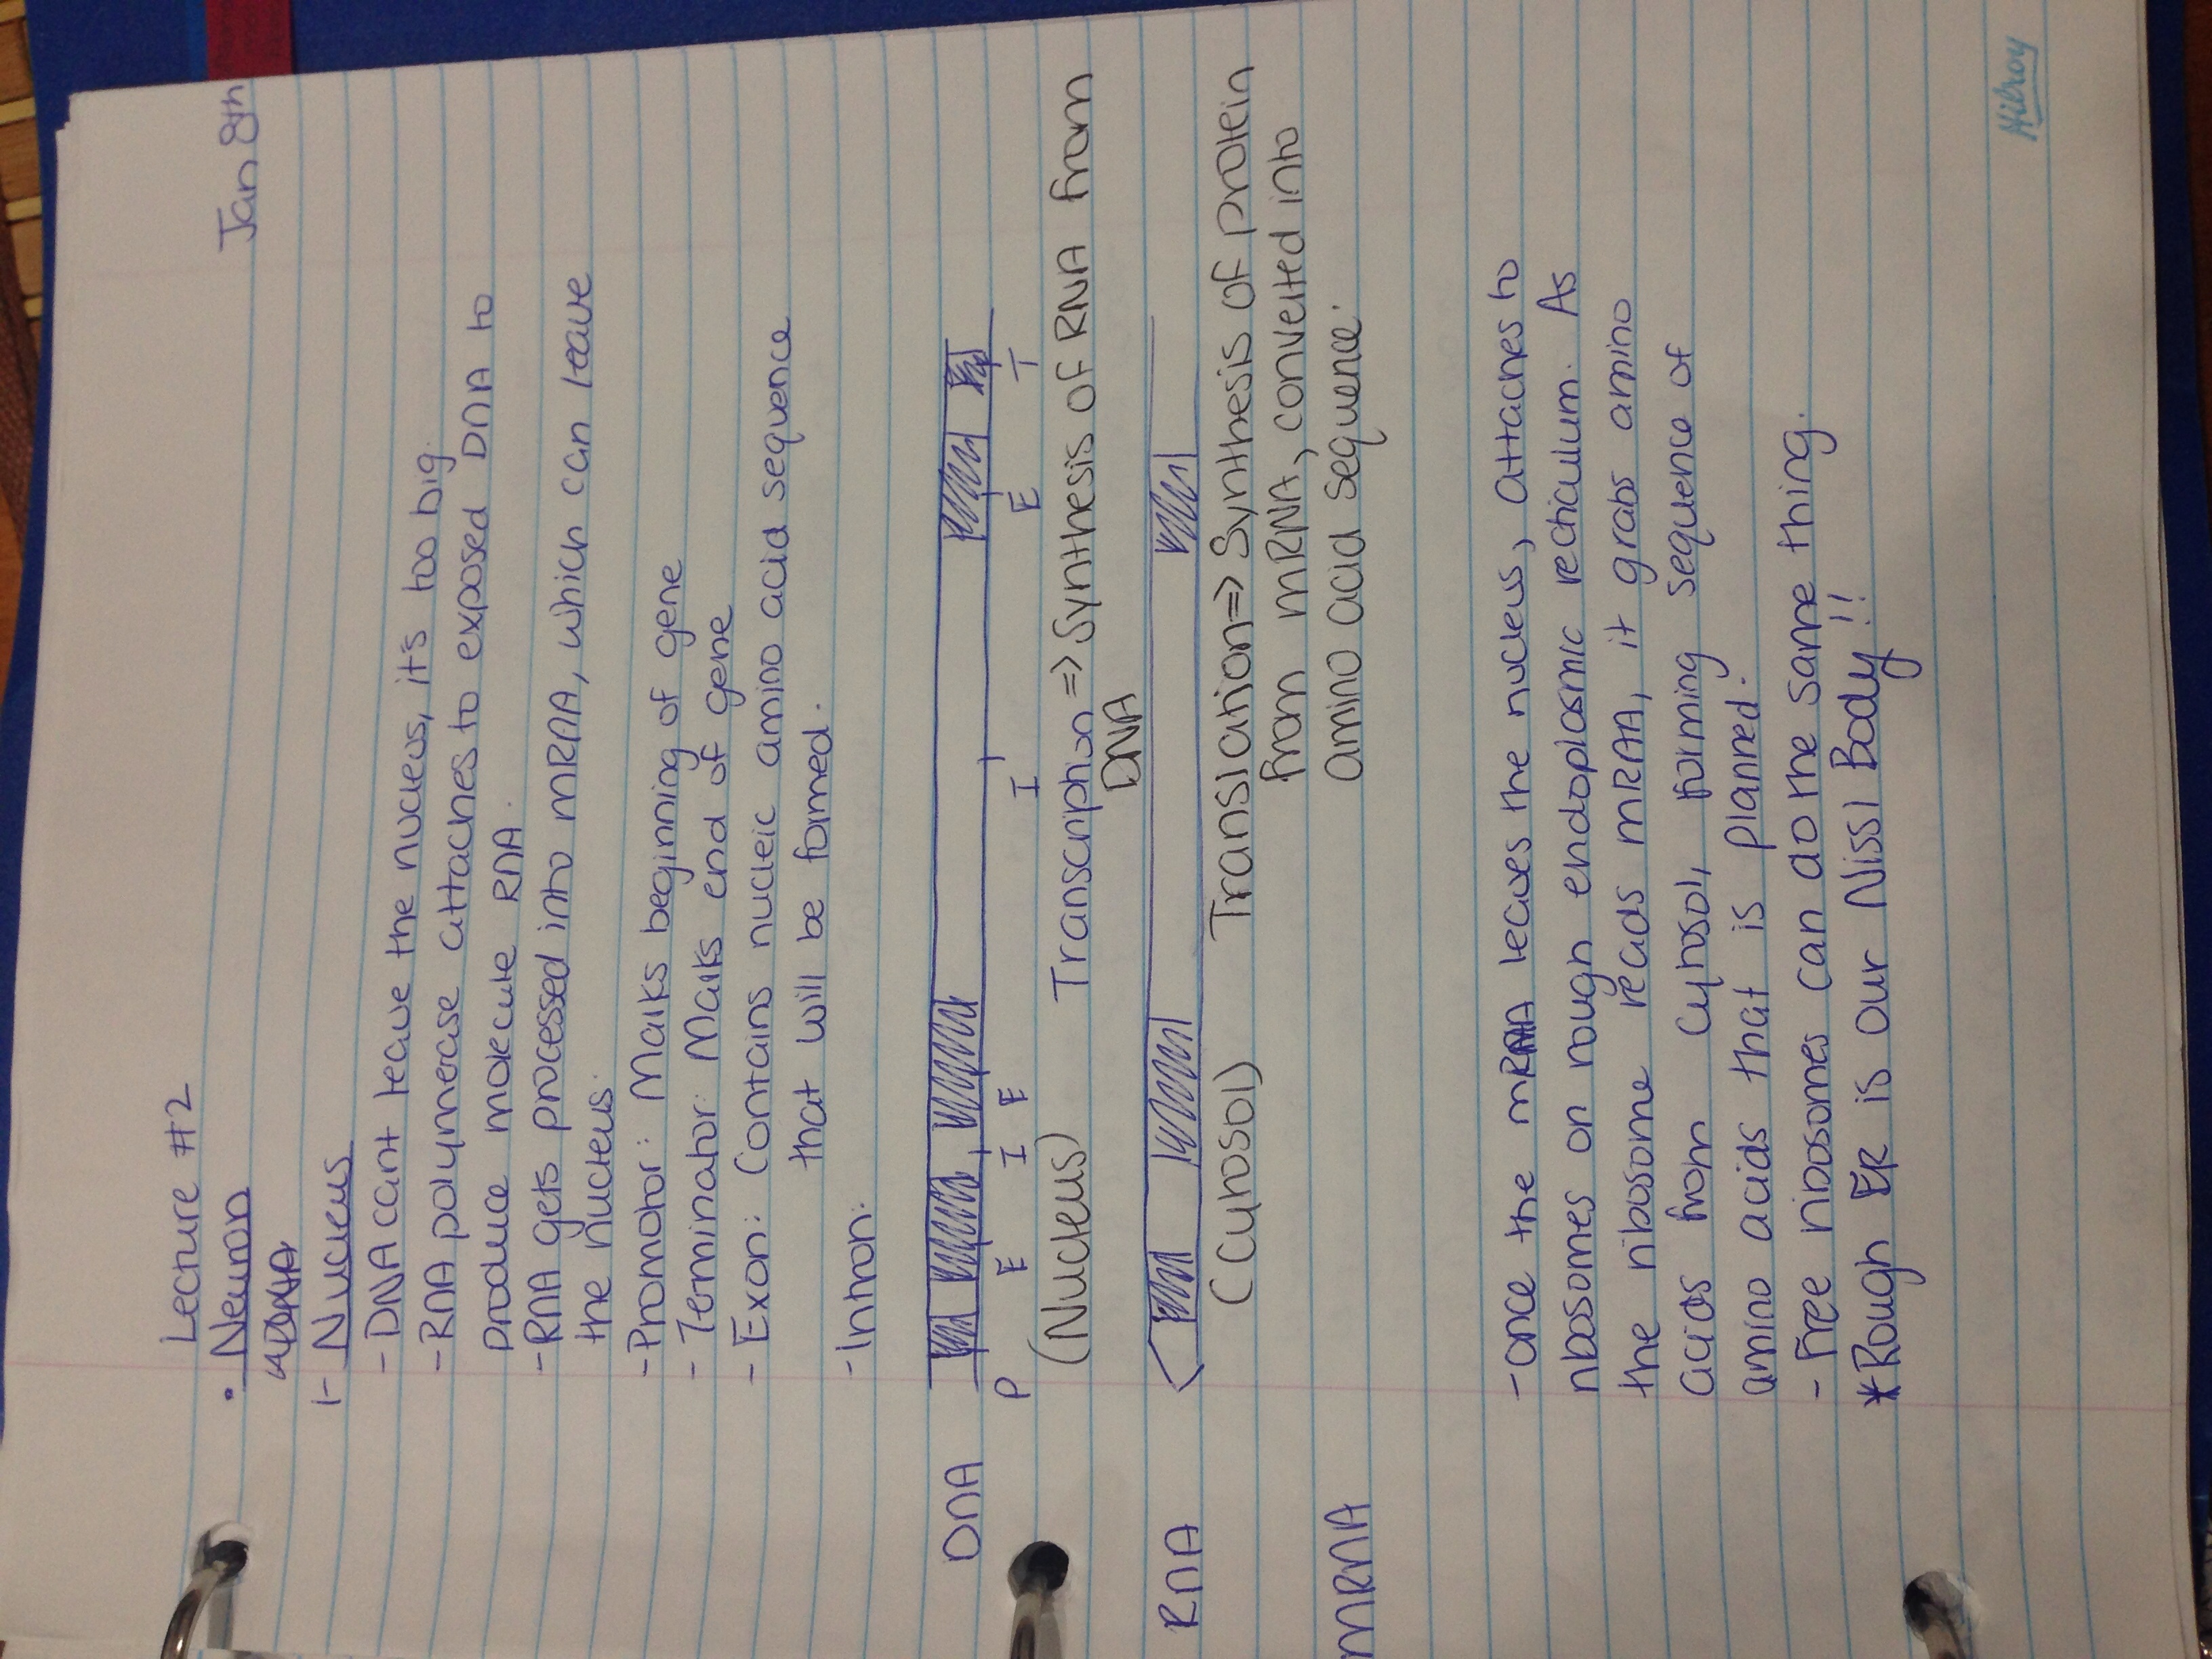 Jan 8th
Lecture #2
• Neuron
1- Nucleus
- DNA cant leave the nucleus, it's too big.
- RNA polymerase attaches to exposed DNA to
produce molecule RNA.
- RNA gets processed into mRNA, which can leave
the nucleus.
- Promotor: Marks beginning of gene
- Terminator: Marks end of gene
- Exon: Contains nucleic amino acid sequence
that will be formed.
- Intron:
DNA
P E I E I E T
(Nucleus) Transcription => Synthesis of RNA from
DNA
RNA
(Cytosol) Translation => Synthesis of protein
from mRNA, converted into
mRNA amino acid sequence.
- once the mRNA leaves the nucleus, attaches to
ribosomes on rough endoplasmic recticulum. As
the ribosome reads mRNA, it grabs amino
acids from cytosol, forming sequence of
amino acids that is planned.
- Free ribosomes can do the same thing.
* Rough ER is our Nissl Body!!
Hilroy